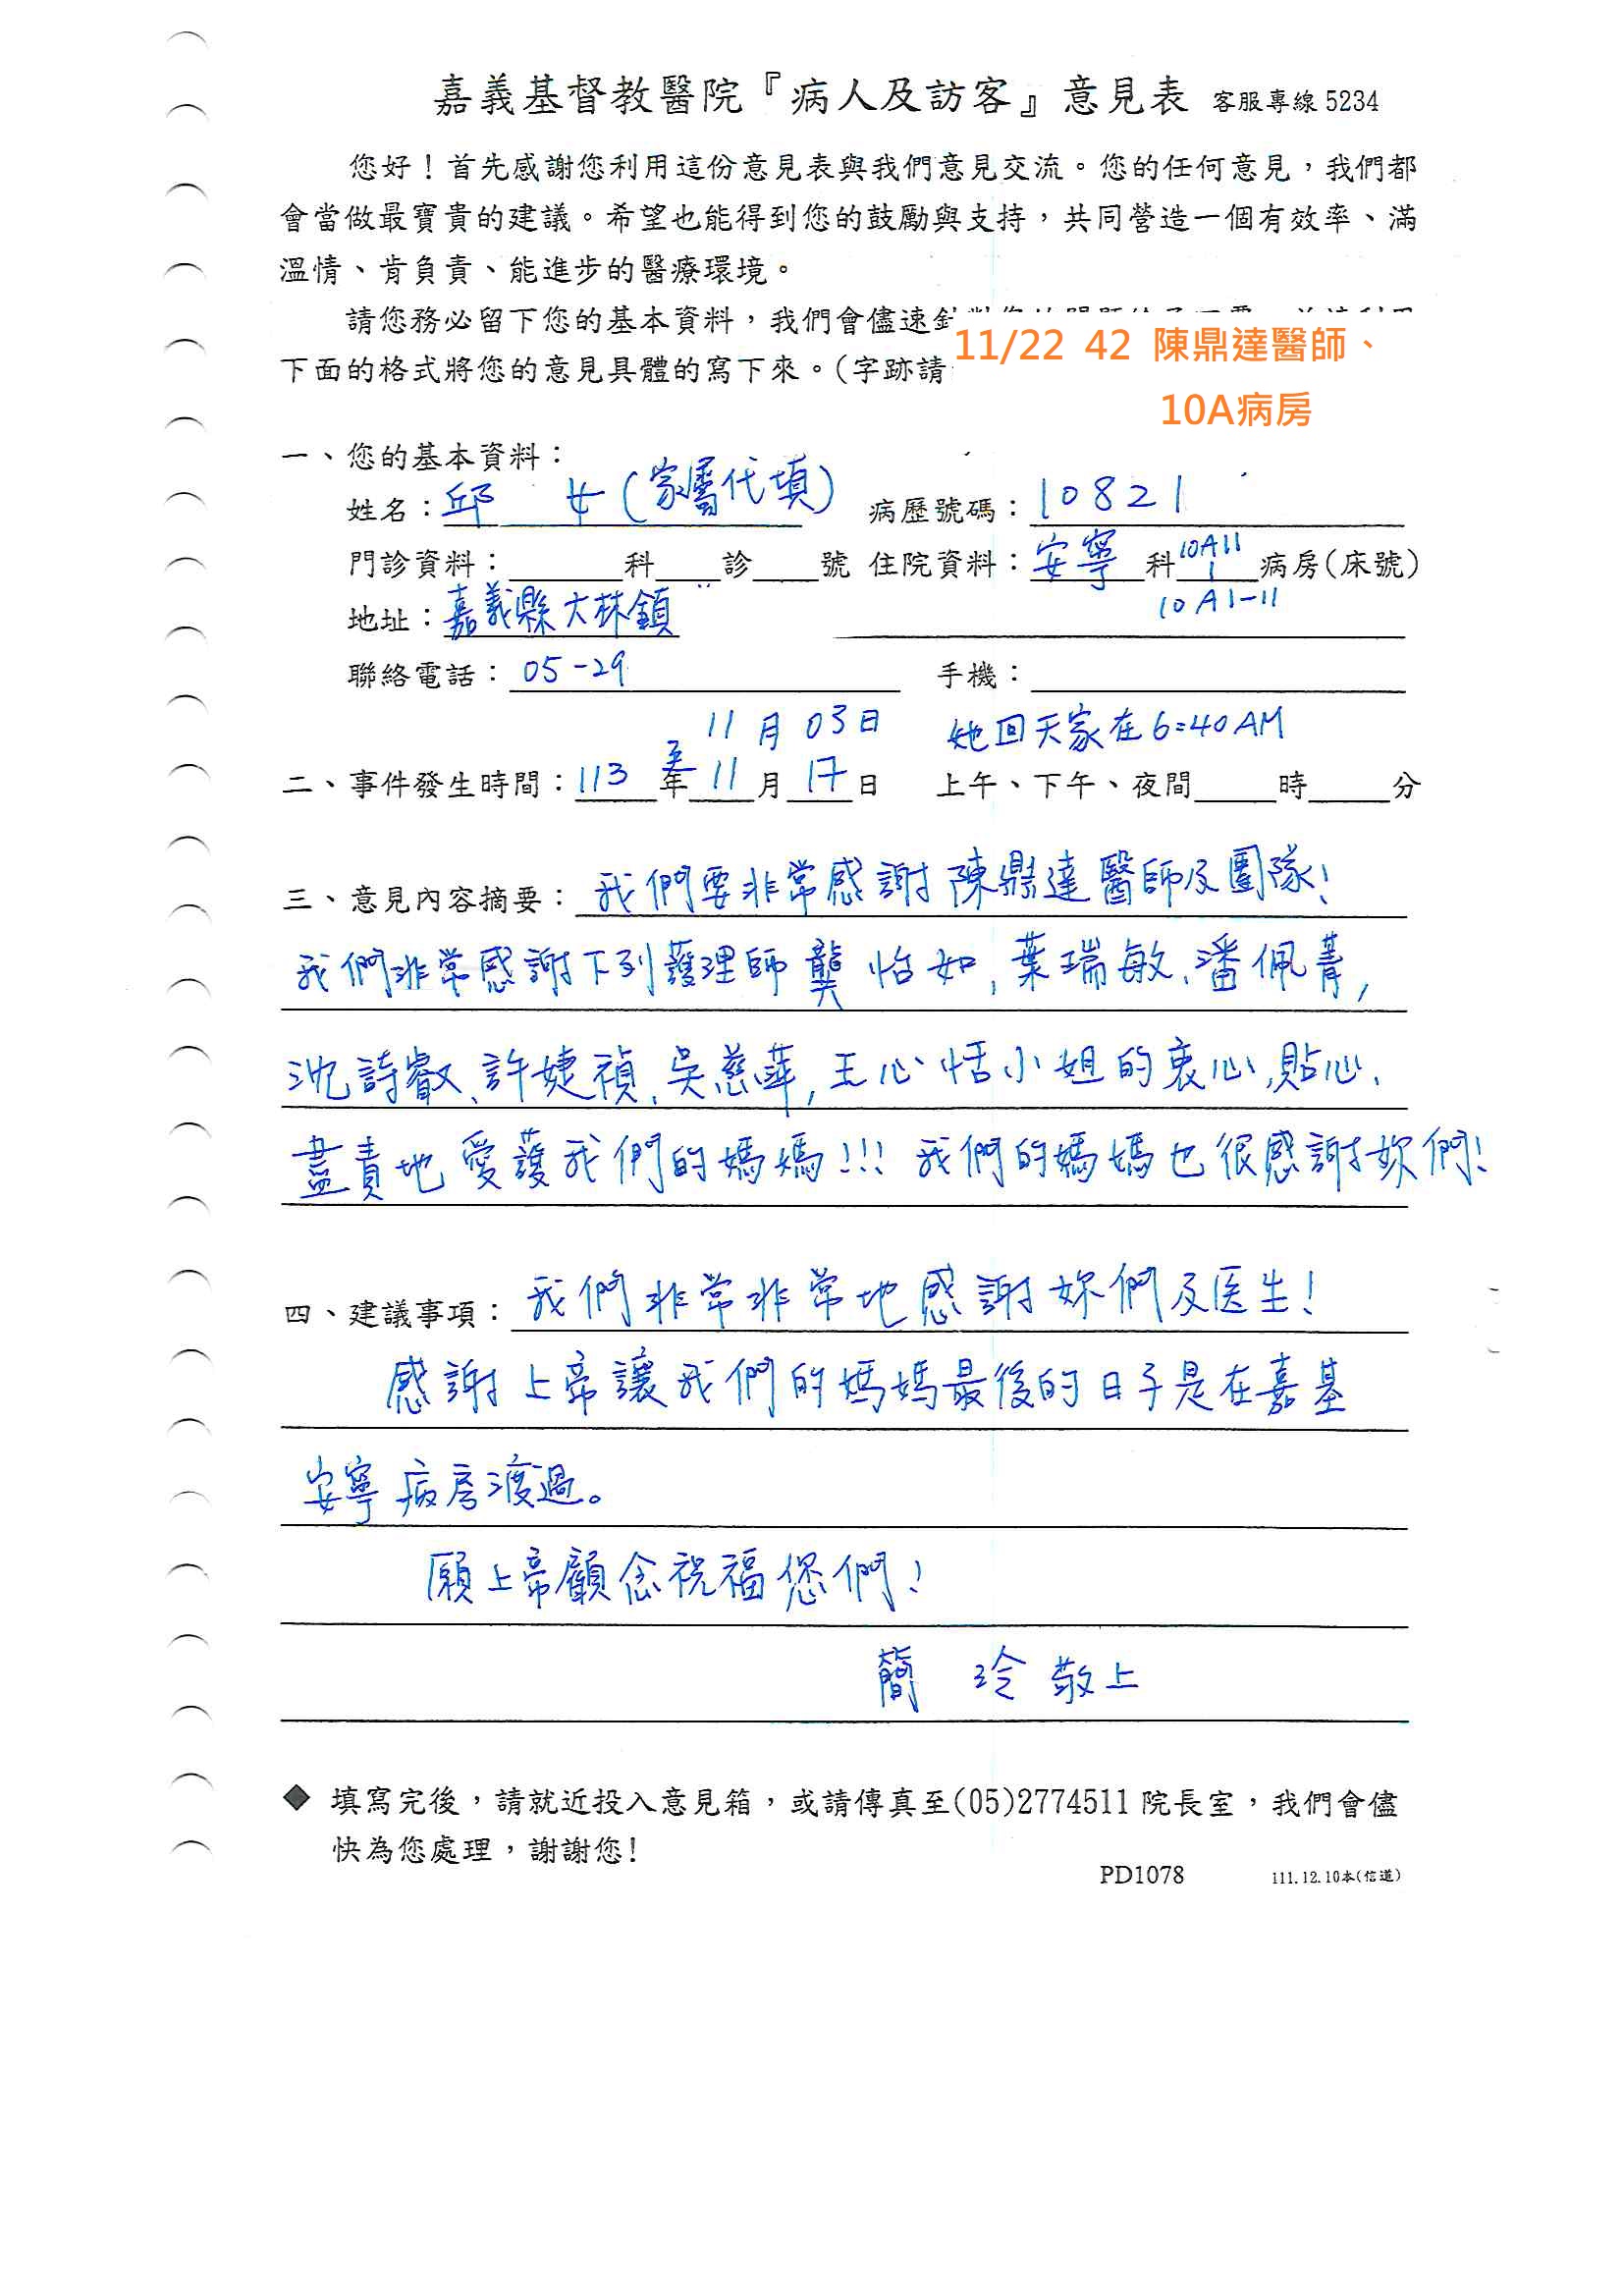 嘉義基督教醫院『病人及訪客』意見表 客服專線 5234
您好！首先感謝您利用這份意見表與我們意見交流。您的任何意見，我們都
會當做最寶貴的建議。希望也能得到您的鼓勵與支持，共同營造一個有效率、滿
溫情、肯負責、能進步的醫療環境。
請您務必留下您的基本資料，我們會儘速針對您的
下面的格式將您的意見具體的寫下來。(字跡請
11/22 42 陳鼎達醫師、
10A病房
一、您的基本資料：
姓名：邱 女(家屬代填) 病歷號碼：10821
門診資料：科 診 號 住院資料：安寧科 10A11 病房(床號)
10A1-11
地址：嘉義縣大林鎮
聯絡電話：05-29 手機：
11月03日 她回天家在6:40AM
至
二、事件發生時間：113年11月17日 上午、下午、夜間 時 分
三、意見內容摘要：我們要非常感謝陳鼎達醫師及團隊!
我們非常感謝下列護理師龔怡如,葉瑞敏、潘佩菁,
沈詩叡、許婕禎、吳慈萍,王心恬小姐的衷心、貼心、
盡責地愛護我們的媽媽!!!我們的媽媽也很感謝妳們!
四、建議事項：我們非常非常地感謝妳們及医生!
感謝上帝讓我們的媽媽最後的日子是在嘉基
安寧病房渡過。
願上帝顧念祝福您們!
簡 玲 敬上
◆ 填寫完後，請就近投入意見箱，或請傳真至(05)2774511 院長室，我們會儘
快為您處理，謝謝您!
PD1078 111.12.10本(信道)